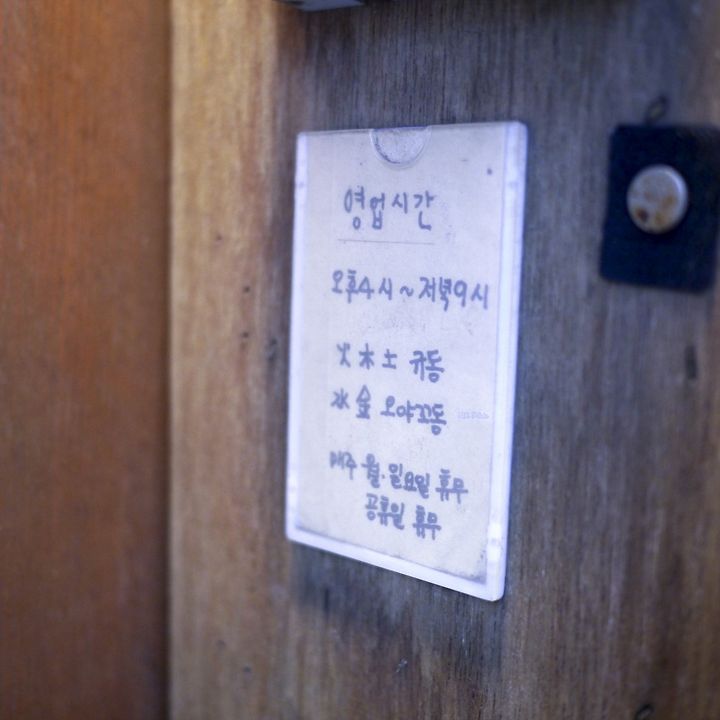 영업시간
오후4시~저녁9시
火木土 규동
水金 오야꼬동
매주 월.일요일 휴무
공휴일 휴무